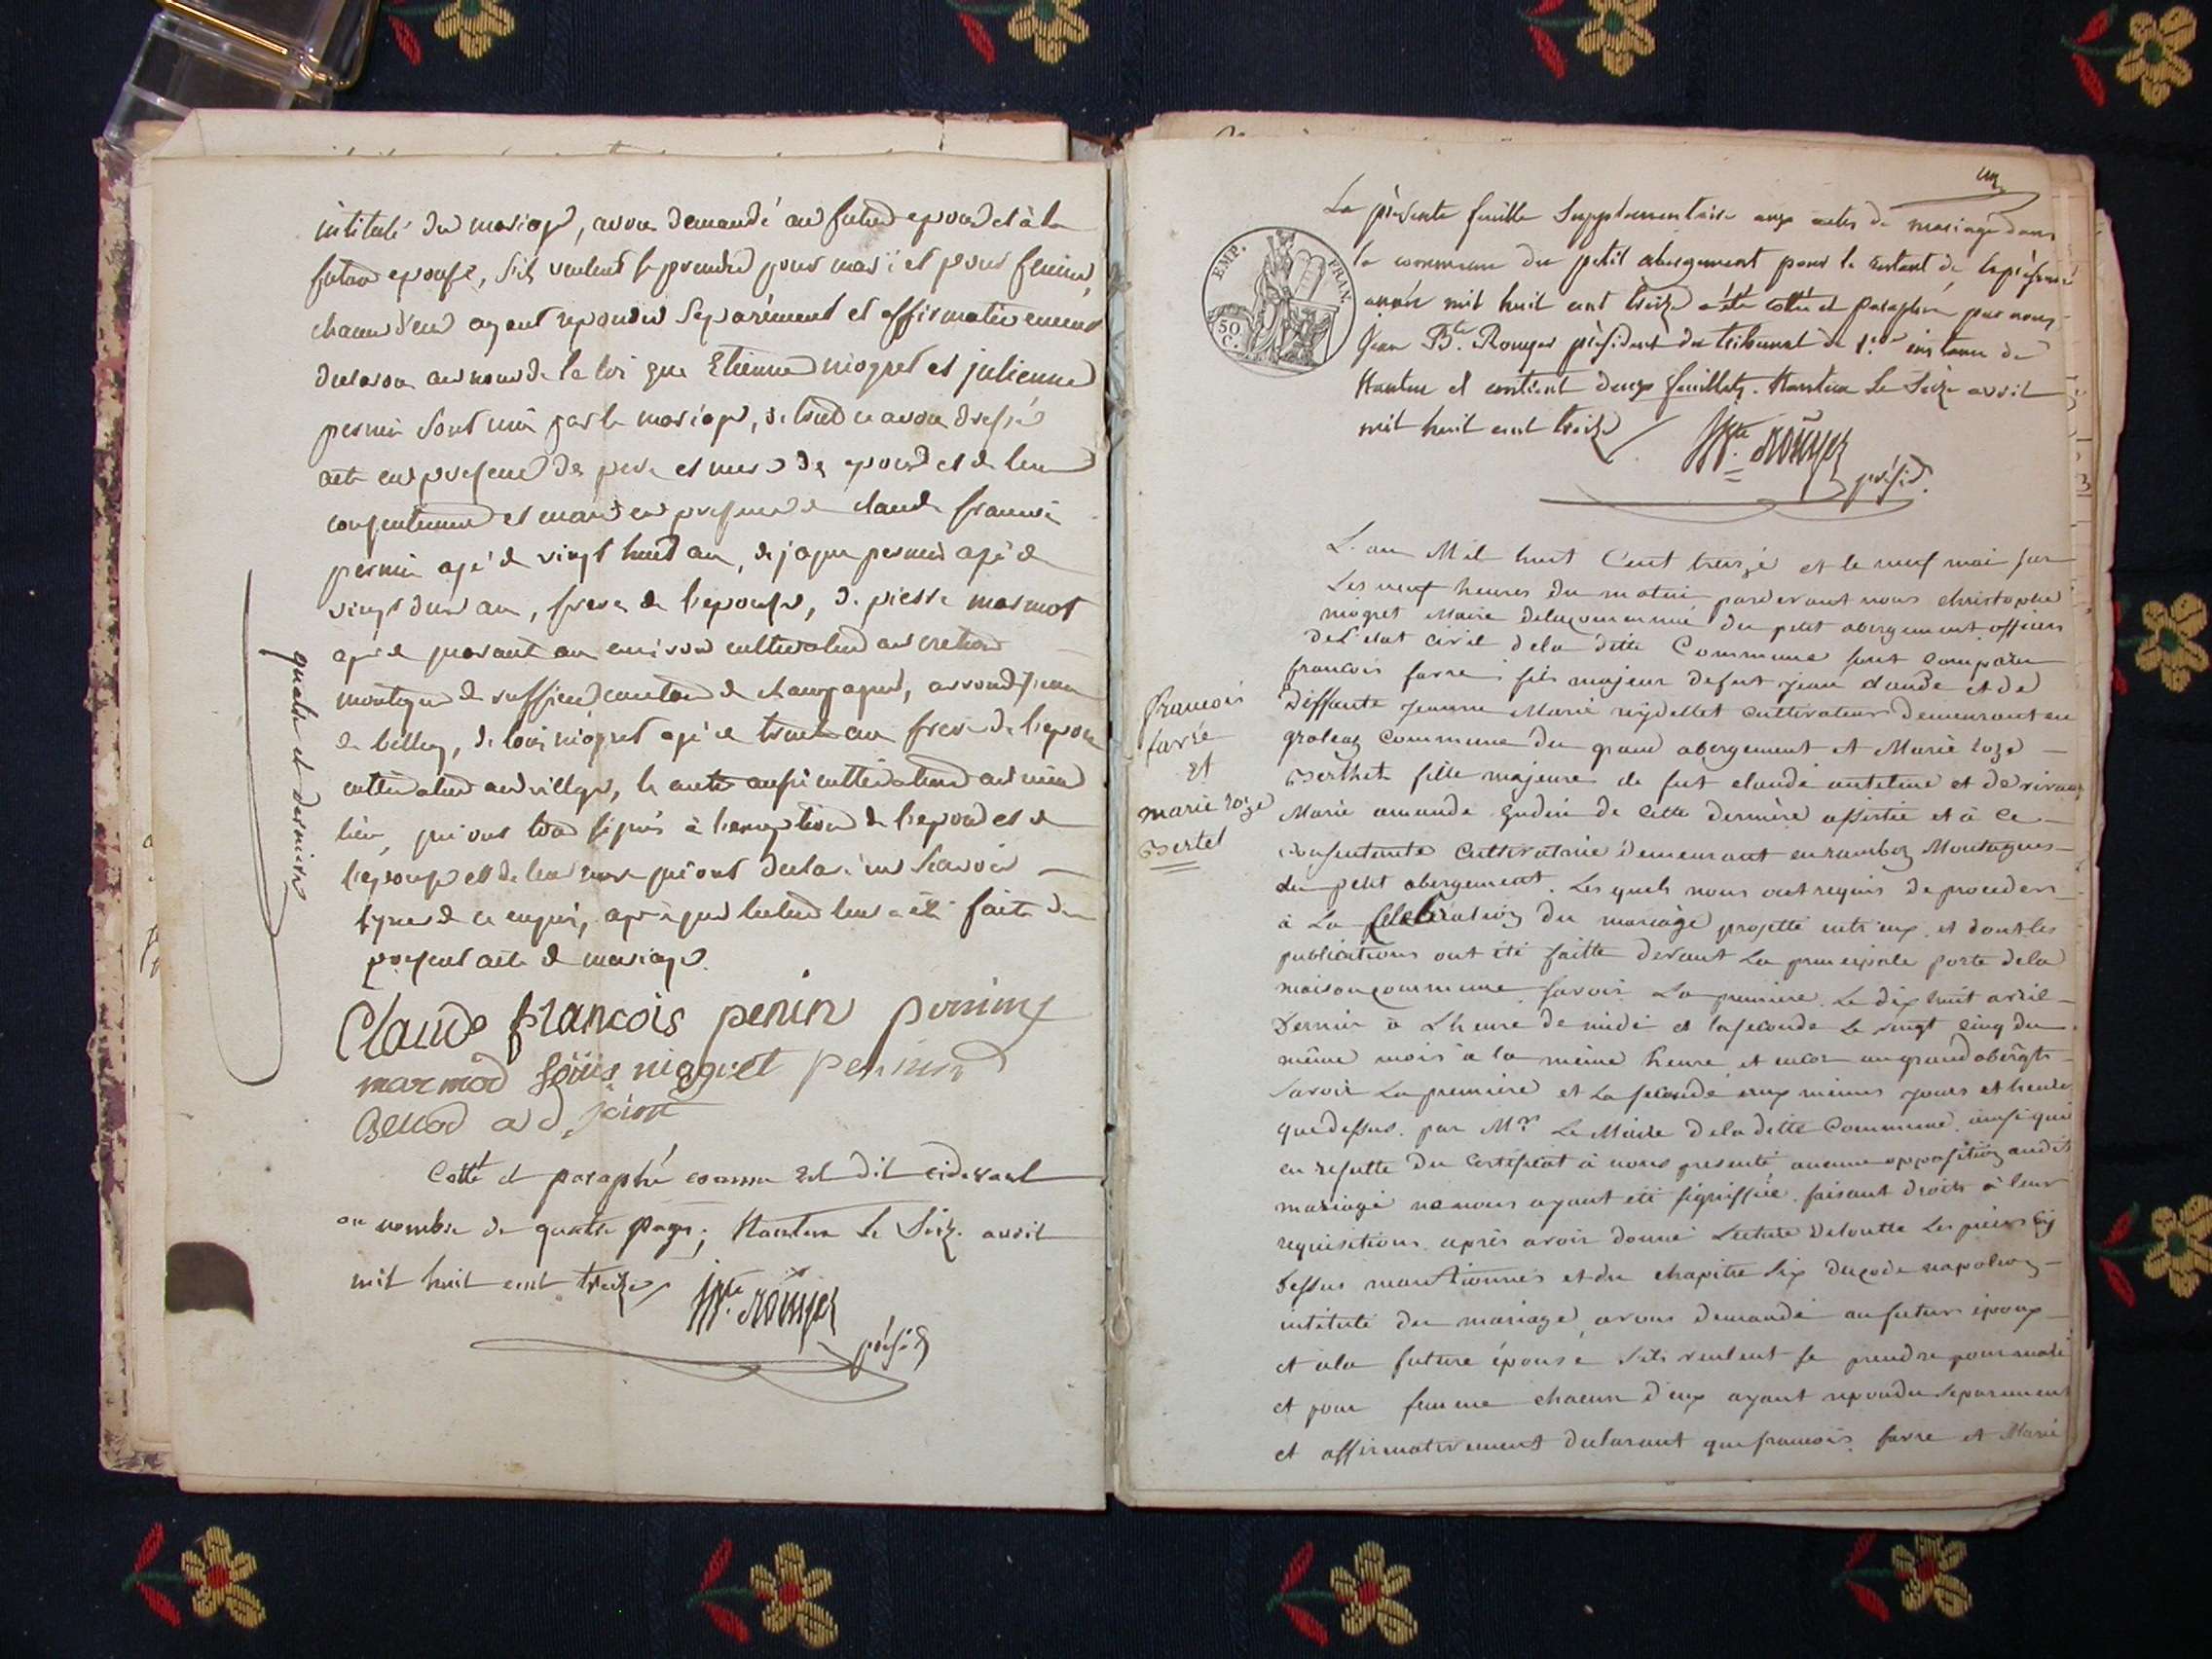 intitulé du mariage, avons demandé au futur epoux et à la
future epouse, s'ils veulent se prendre pour mari et pour femme,
chacun d'eux ayant repondu separément et affirmativement
declarons au nom de la loi que Etienne niogret et julienne
pernin sont unis par le mariage, de tout ce avons dressé
acte en presence des pere et mere des epoux et de leur
consentement et encore en presence de claude francois
pernin agé de vingt huit ans, de jaque pernin agé de
vingt deux ans, freres de l'epouse, de pierre marmot
agé de quarante ans environ cultivateur au
montagne de ruffieu canton de champagne, arrondissement
de belley, de louis niogret agé de trente ans frere de l'epoux
cultivateur au village, les autres aussi cultivateurs au même
lieu, qui ont tous signés à l'exception de l'epoux et de
l'epouse et de leur mere qui ont declaré ne scavoir
signer de ce enquis, après que lecture leur a été faite du
present acte de mariage.
quatre et dernier
Claude francois penin pernin
marmod louis niogret penin
adjoint
Cotté et paraphé comme est dit cidevant
au nombre de quatre pages; Nantua le Seize avril
mil huit cent treize
J Bte Rouyer
présid.
un
La présente feuille Supplementaire aux actes de mariage dans
EMP. FRAN.
50 C.
la commune du petit abergement pour le restant de la présente
année mil huit cent treize a été cotée et paraphée par nous
Jean Bte. Rouyer président du tribunal de 1ere instance de
Nantua et contient deux feuillets. Nantua Le Seize avril
mil huit cent treize
J Bte. Rouyer
présid.
L'an Mil huit Cent treize et le neuf mai sur
Les neuf heures du matin pardevant nous christophe
niogret Maire dela commune du petit abergement officier
de L'etat Civil dela ditte Commune sont comparus
francois favre fils majeur de feu jean claude et de
Deffunte jeanne Marie reydellet cultivateur demeurant en
Commune du grand abergement et Marie roze
Berthet fille majeure de feu claude antelme et de vivante
Marie amande Gudin de cette dernière assistée et à ce
consentente Cultivatrice demeurant en Montagnes
du petit abergement. Les quels nous ont requis de proceder
à La Celebration du mariage projetté entr'eux et dont les
publications ont été faitte devant La principale porte dela
maison commune savoir La premiere Le dix huit avril
Dernier à L'heure de midi et la seconde Le vingt cinq du
même mois à la même heure et encor au grand abergt.
savoir La premiere et La seconde aux mêmes jours et heure
que dessus par Mr. Le Maire dela ditte Commune ainsi qui
en resulte du Certificat à nous presenté aucune opposition audit
mariage ne nous ayant été signiffiée faisant droit à leur
requisitions après avoir donné Lecture De toutte Les pieces Cy
Dessus mentionnés et du chapitre six du code napoleon
intitulé du mariage, avons demandé au futur époux
et à la future épouse s'ils veulent se prendre pour mari
et pour femme chacun d'eux ayant repondu separement
et affirmativement declarant que francois favre et Marie
francois
favre
et
marie roze
Bertet